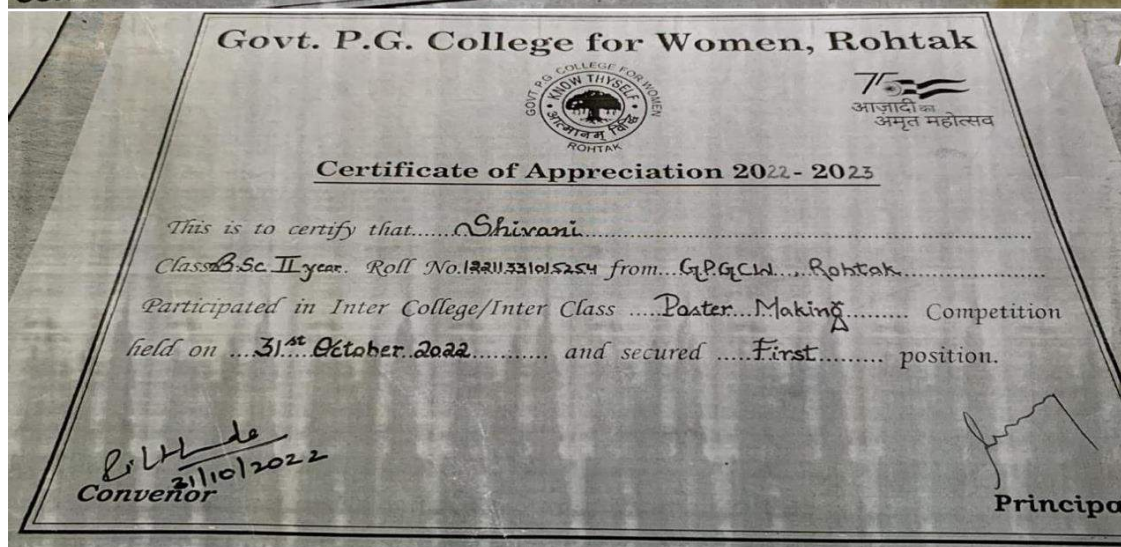 Govt. P.G. College for Women, Rohtak
GOVT. P.G. COLLEGE FOR WOMEN
KNOW THYSELF
आत्मानम् विद्धि
ROHTAK
75
आज़ादी का
अमृत महोत्सव
Certificate of Appreciation 2022-2023
This is to certify that......Shivani......
Class B.Sc II year. Roll No. from...G.P.G.C.W...,Rohtak......
Participated in Inter College/Inter Class .....Poster...Making......... Competition
held on ...31st October 2022......... and secured .....First......... position.
31/10/2022
Convenor
Principa